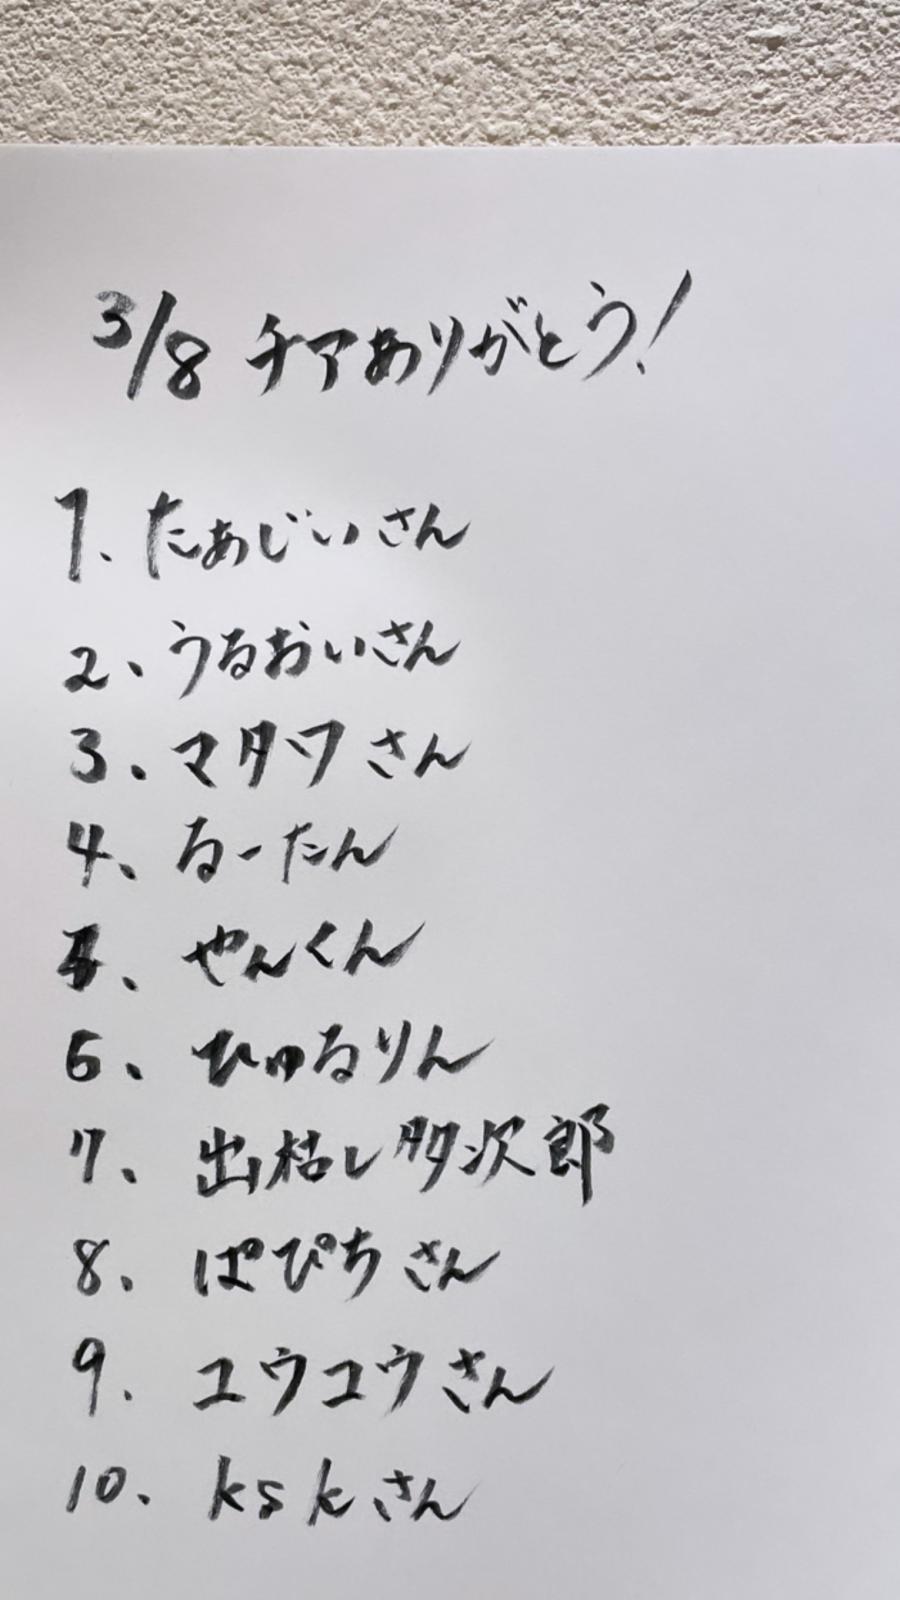 3/8 チアありがとう!
1. たぁじいさん
2、うるおいさん
3. マタワさん
4、るーたん
5、やんくん
6、ひゅるりん
7、出枯し多次郎
8. ぱぴちさん
9. ユウユウさん
10. kskさん